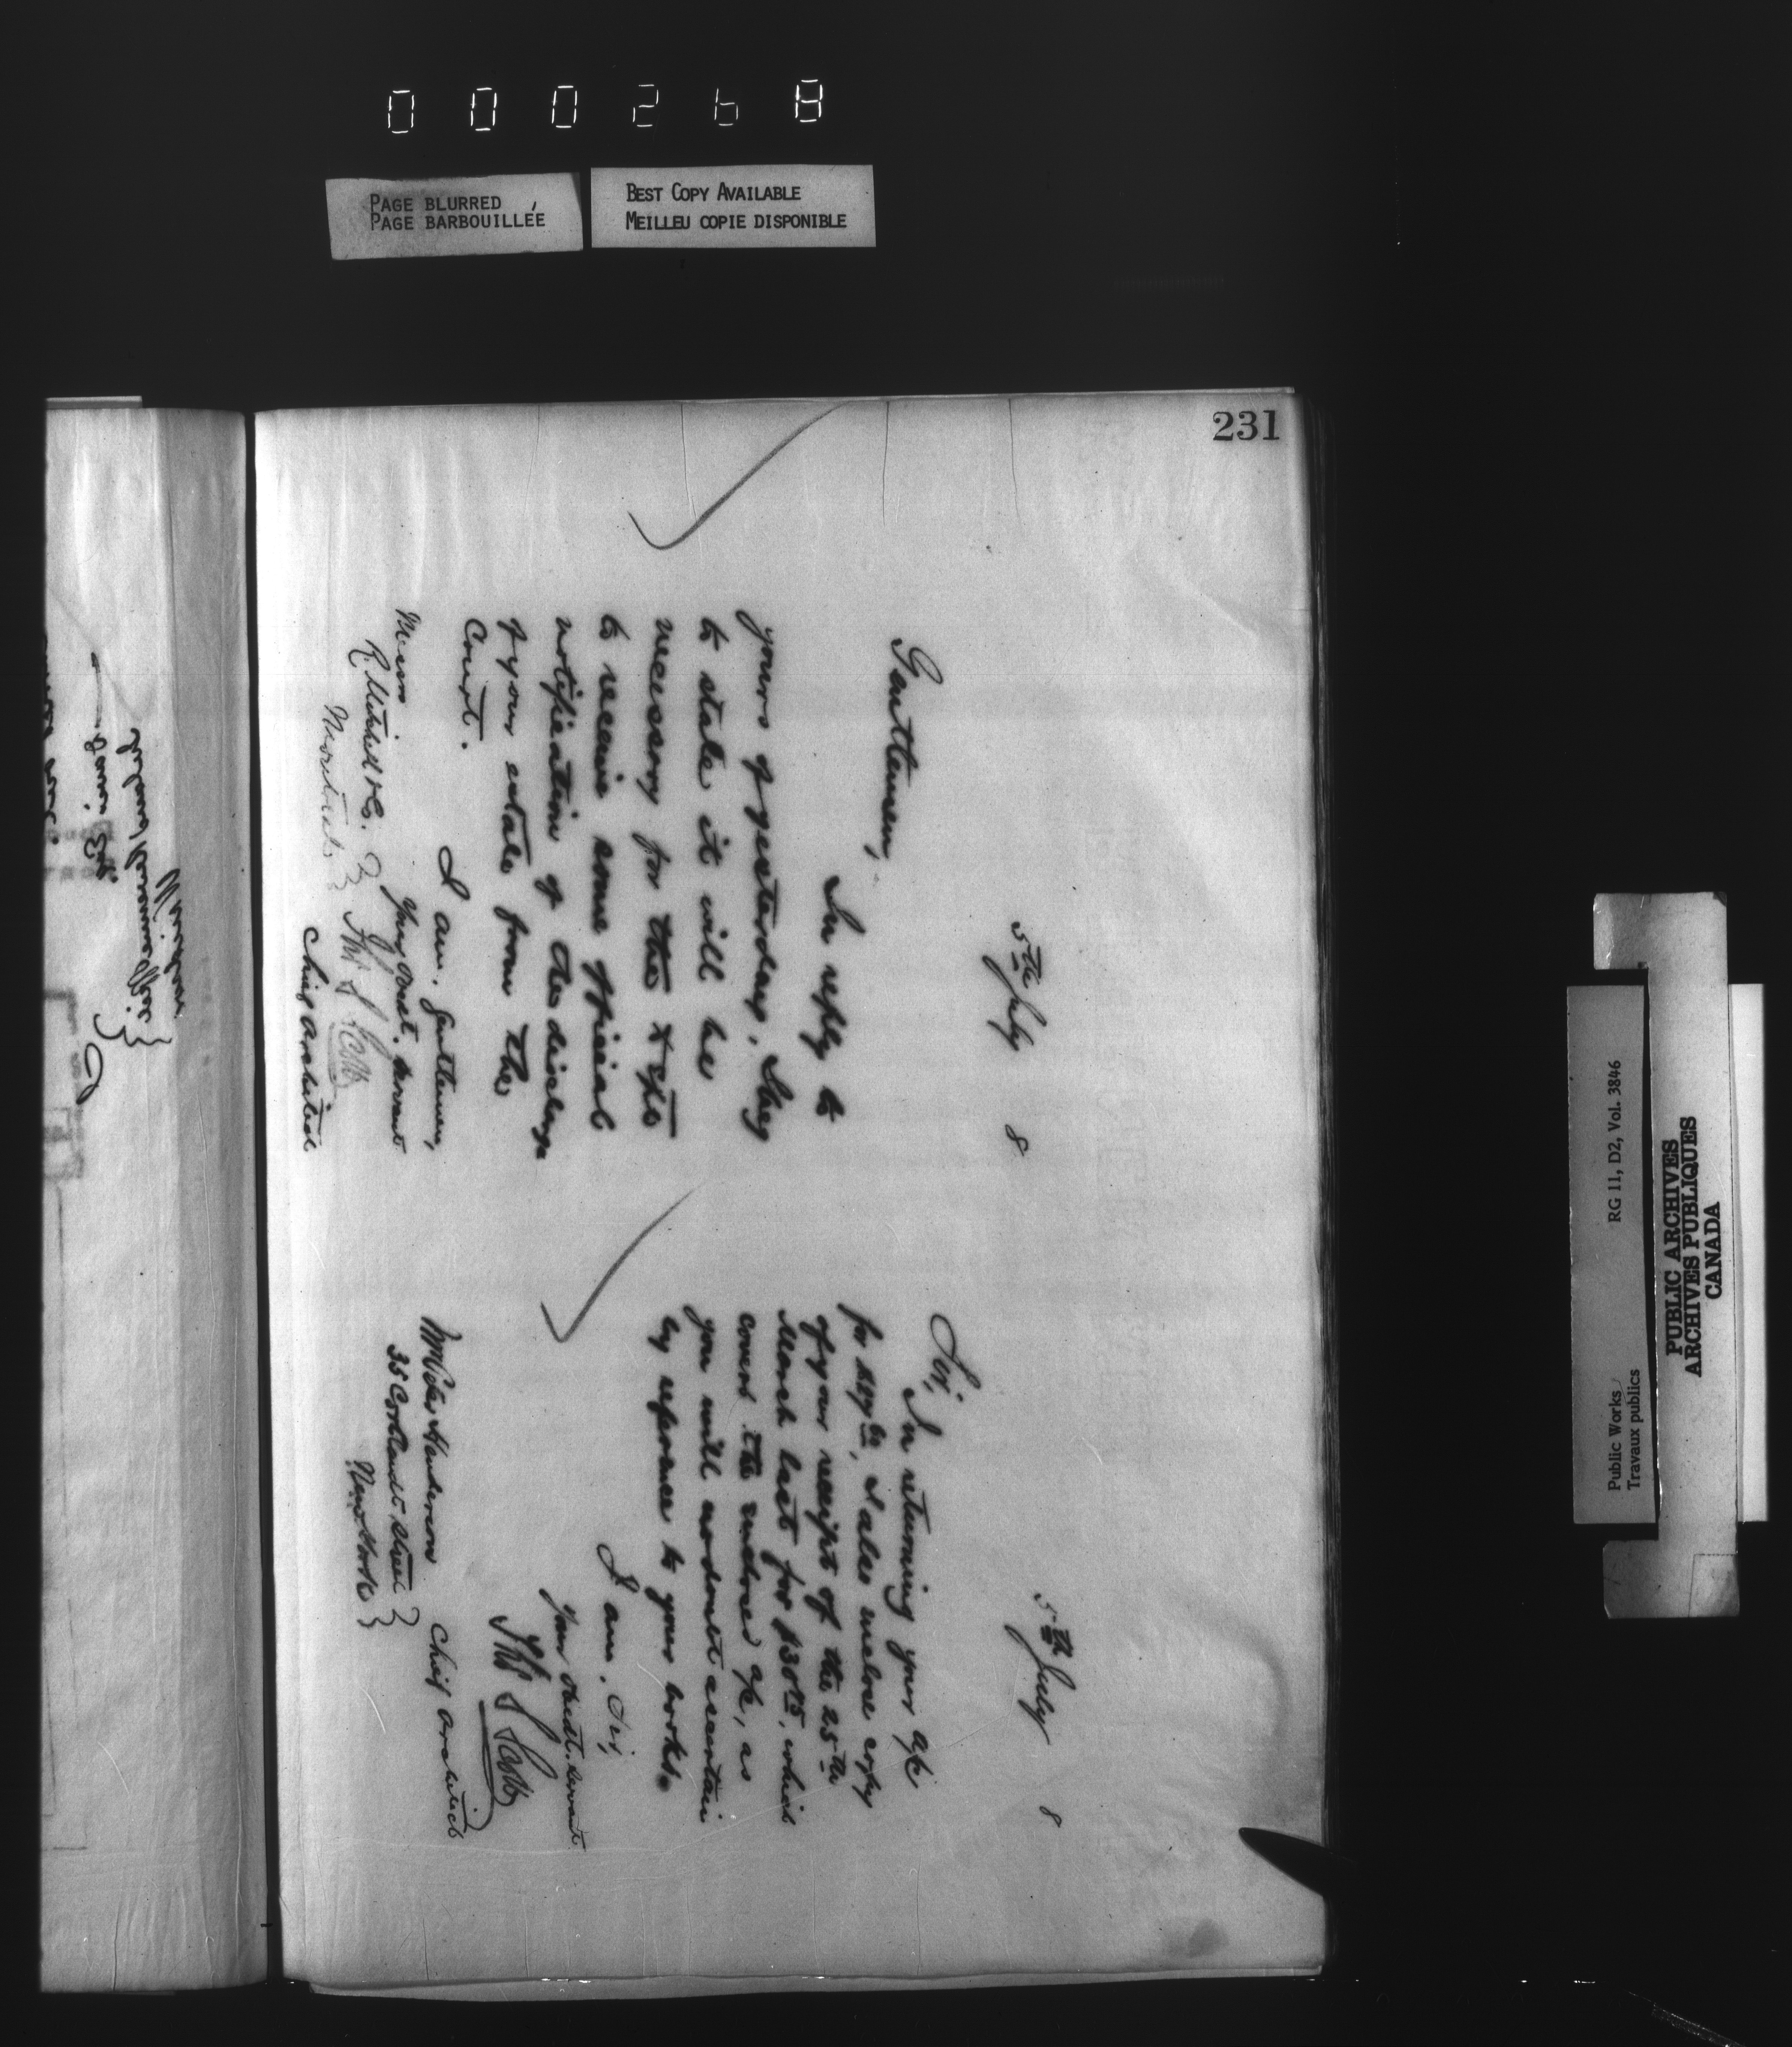 000268
PAGE BLURRED
PAGE BARBOUILLÉE
BEST COPY AVAILABLE
MEILLEU COPIE DISPONIBLE
231
5th July 8
Gentlemen,
In reply to
yours of yesterday, I beg
to state it will be
necessary for the Dept
to receive some official
notification of the discharge
of your estate from the
Court.
I am, Gentlemen,
Your Obedt. Servant
Thos S Scott
Chief Architect
Messrs
R Mitchell & Co. }
Montreal. }
5th July 8
Sir,
In returning your a/c
I also enclose copy
of your receipt of the 25th
March last for which
covers the enclosed a/c, as
you will no doubt ascertain
by reference to your books.
I am, Sir,
Your Obedt. Servant
Thos S Scott
Chief Architect
Mr Peter Henderson
35 Cortlandt Street }
New York }
PUBLIC ARCHIVES
ARCHIVES PUBLIQUES
CANADA
RG 11, D2, Vol. 3846
Public Works
Travaux publics